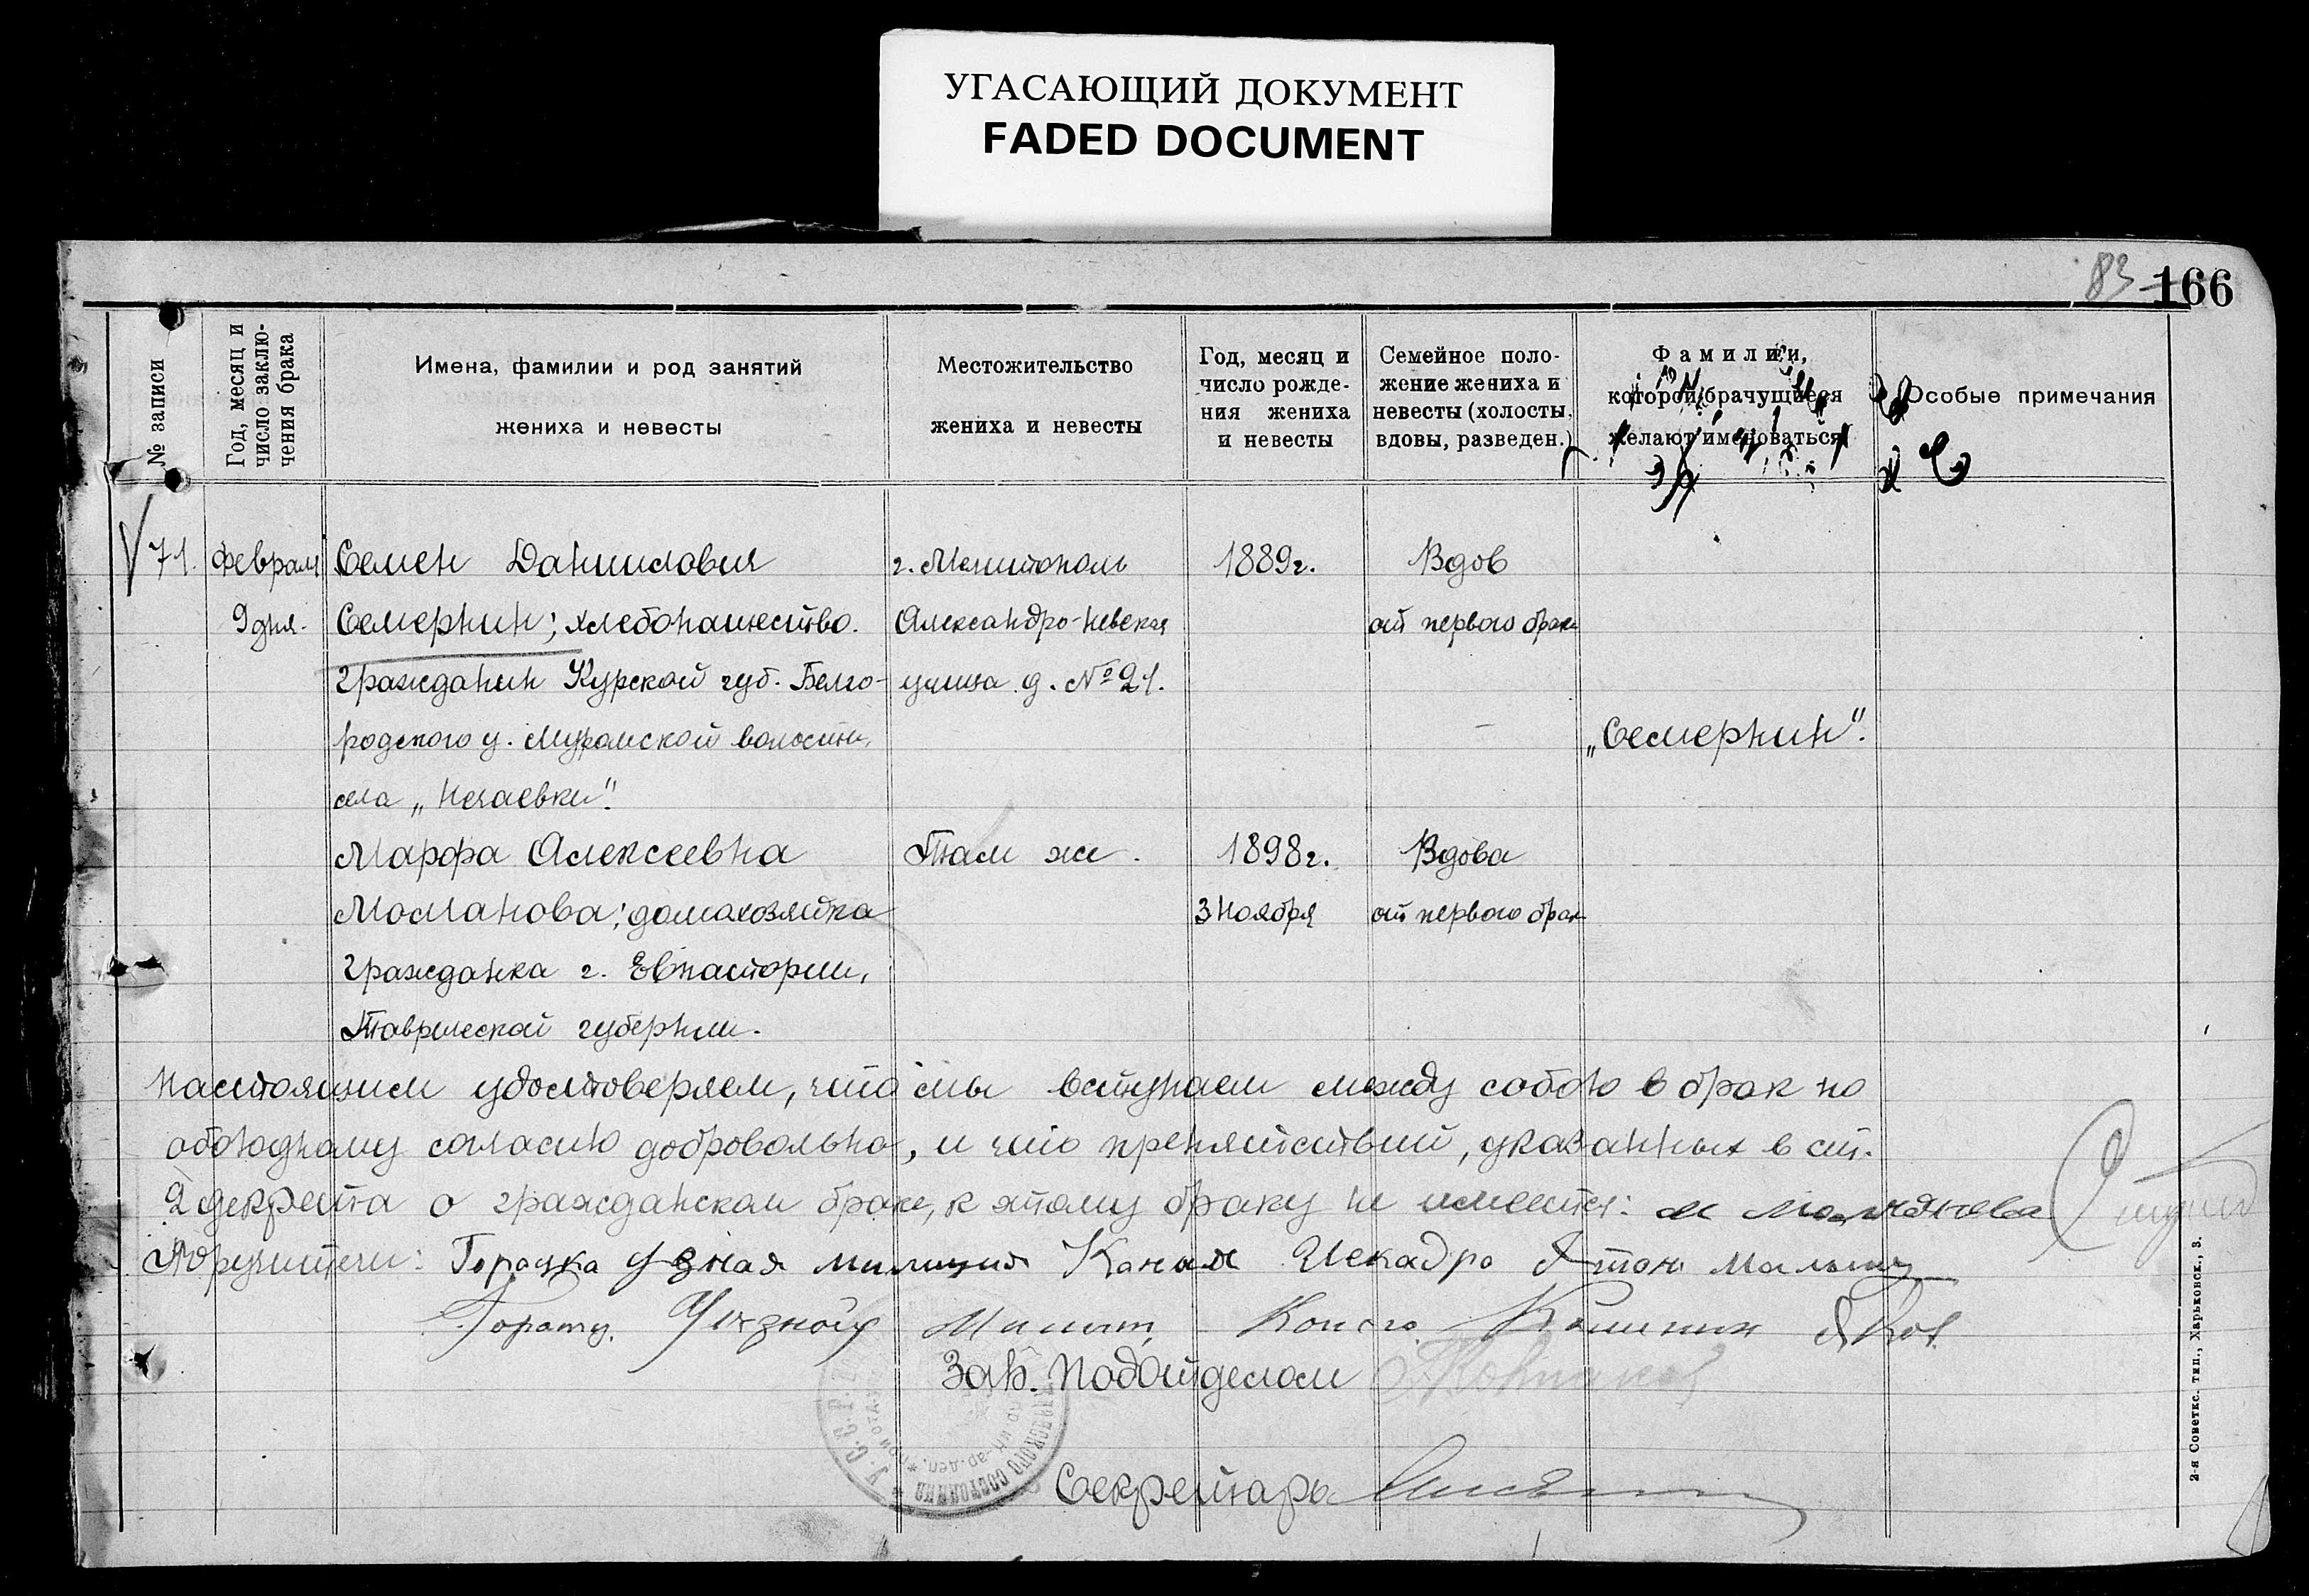 УГАСАЮЩИЙ ДОКУМЕНТ
FADED DOCUMENT
83 166
№ записи
Год, месяц и
число заклю-
чения брака
Имена, фамилии и род занятий
жениха и невесты
Местожительство
жениха и невесты
Год, месяц и
число рожде-
ния жениха
и невесты
Семейное поло-
жение жениха и
невесты (холосты,
вдовы, разведен.)
Фамилии,
которой брачущиеся
желают именоваться
Особые примечания
71.
Февраля
9 дня.
Семен Данилович
Семернин; хлебопашество.
Гражданин Курской губ. Белго-
родского у. Муромской волости,
села „Нечаевки".
г. Мелитополь
Александро-Невская
улица д. № 21.
1889 г.
Вдов
от первого брака
„Семернин".
Марфа Алексеевна
Моманова; домахозяйка
Гражданка г. Евпатории,
Таврической губернии.
Там же.
1898 г.
3 Ноября
Вдова
от первого брак
Настоящим удостоверяем, что мы вступаем между собою в брак по
обоюдному согласию добровольно, и что препятствий, указанных в ст.
2 декрета о гражданском браке, к этому браку не имеется:
Поручители: Горачка Уезная милиция
Зав. Подотделом
Секретарь
У.С.С.Р.
2-я Советск. тип., Харьковск., 3.